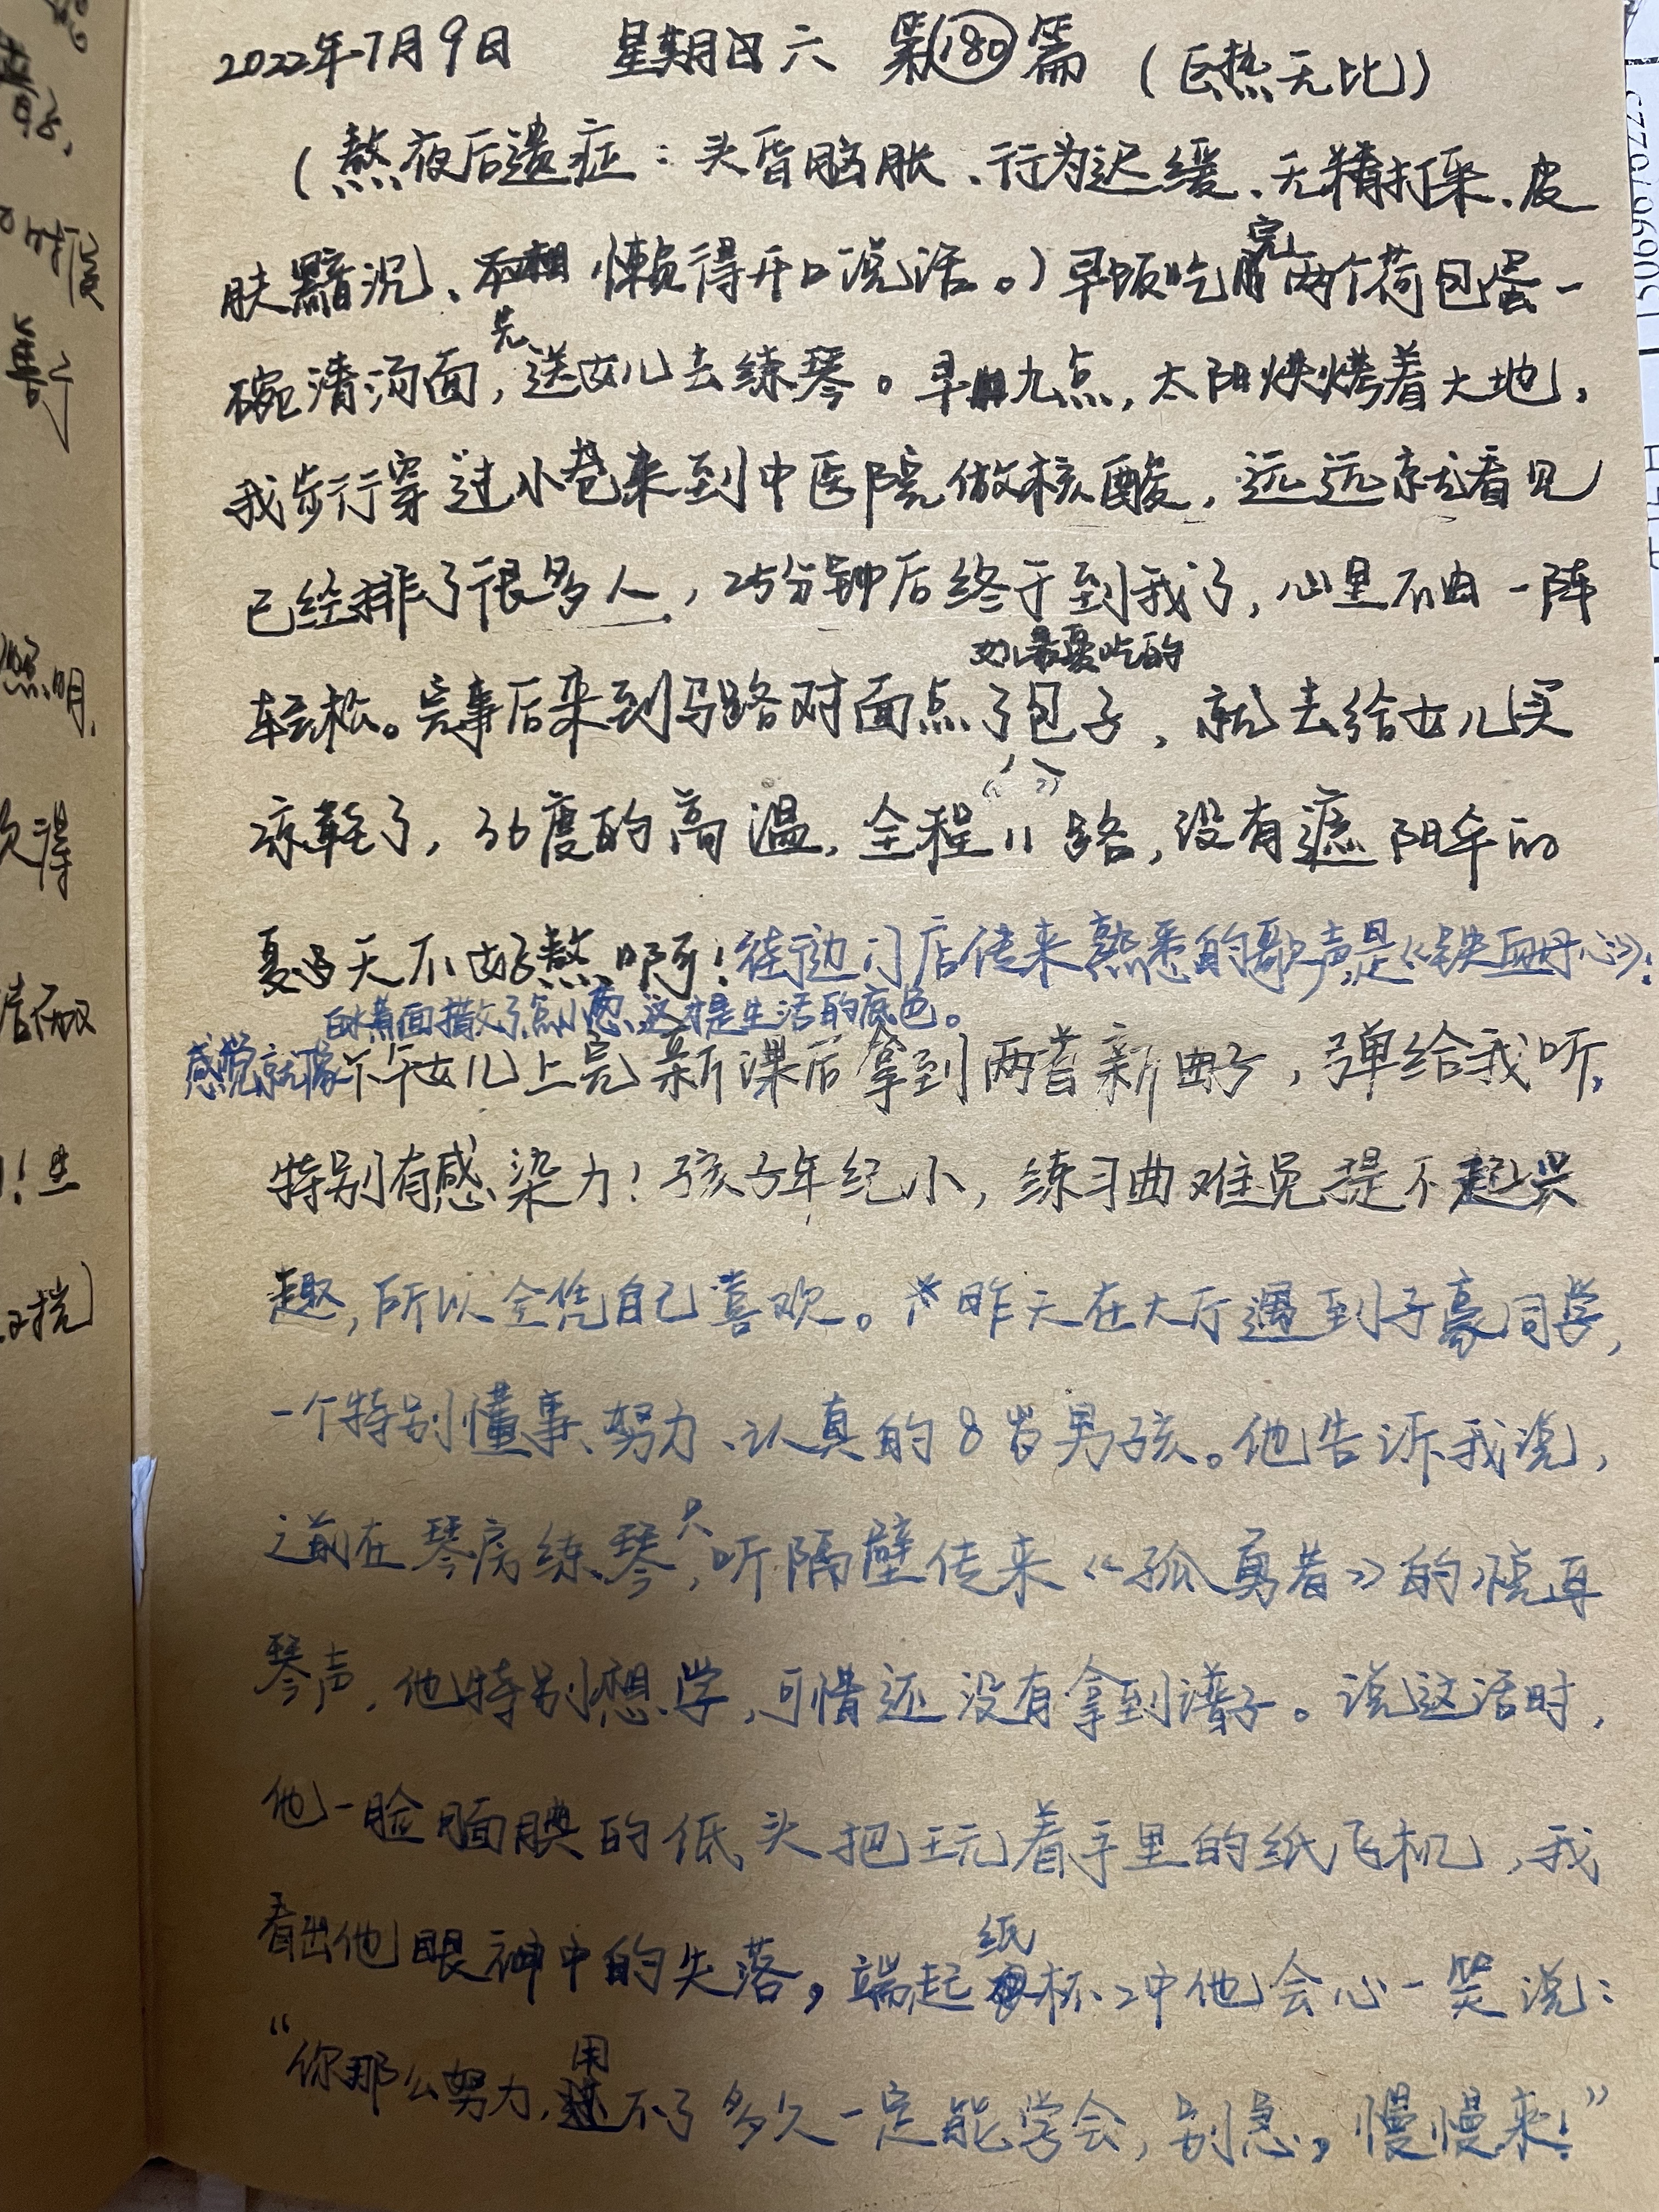 2022年7月9日 星期六 第180篇 (巨热无比)
(熬夜后遗症:头昏脑胀、行为迟缓、无精打采、皮
肤黯沉、懒得开口说话。)早饭吃完两个荷包蛋一
碗清汤面,先送女儿去练琴。早九点,太阳烘烤着大地,
我步行穿过小巷来到中医院做核酸,远远就看见
已经排了很多人,25分钟后终于到我了,心里不由一阵
轻松。完事后来到马路对面点了她最爱吃的包子,就去给女儿买
凉鞋了,36度的高温,全程“11”路,没有遮阳伞的
夏天不好熬啊!街边门店传来熟悉的歌声是《铁血丹心》:
感觉就像白水煮面撒了点小葱,这才是生活的底色。
下午女儿上完新课后拿到两首新曲子,弹给我听,
特别有感染力!孩子年纪小,练习曲难免提不起兴
趣,所以全凭自己喜欢。*昨天在大厅遇到子豪同学,
一个特别懂事、努力、认真的8岁男孩。他告诉我说,
之前在琴房练琴,只听隔壁传来《孤勇者》的悦耳
琴声,他特别想学,可惜还没有拿到谱子。说这话时,
他一脸腼腆的低头把玩着手里的纸飞机,我
看出他眼神中的失落,端起纸杯冲他会心一笑说:
“你那么努力,用不了多久一定能学会,别急,慢慢来!”